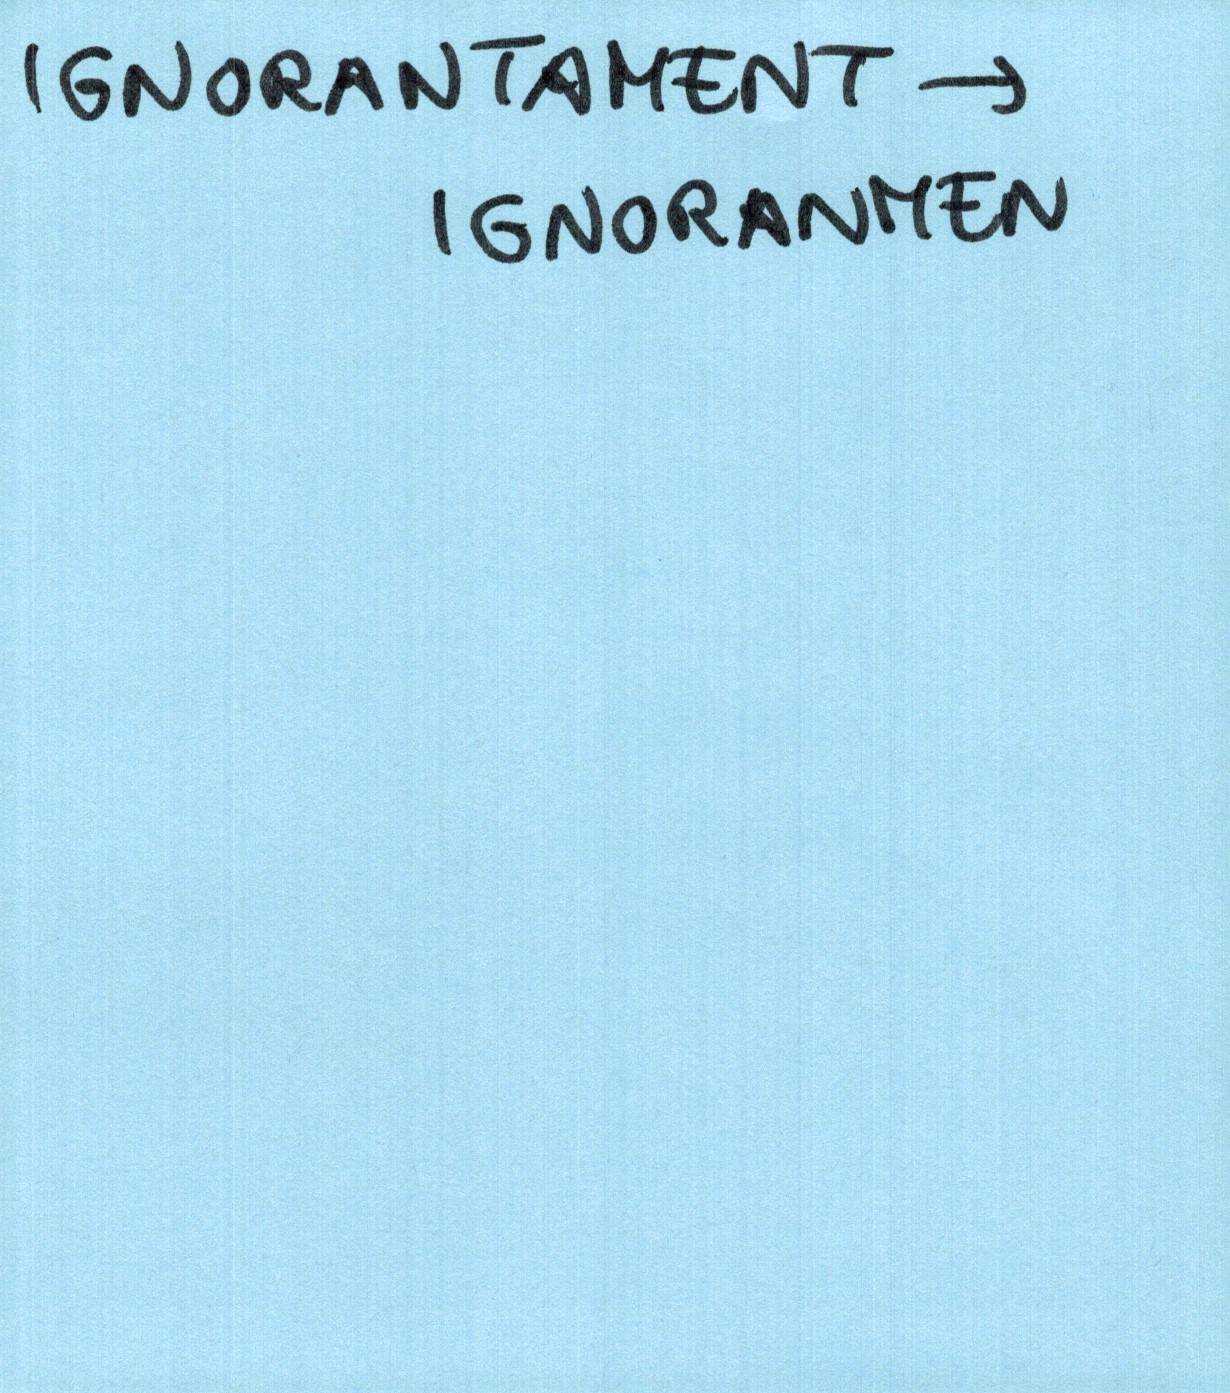 IGNORANTAMENT →
IGNORANMEN